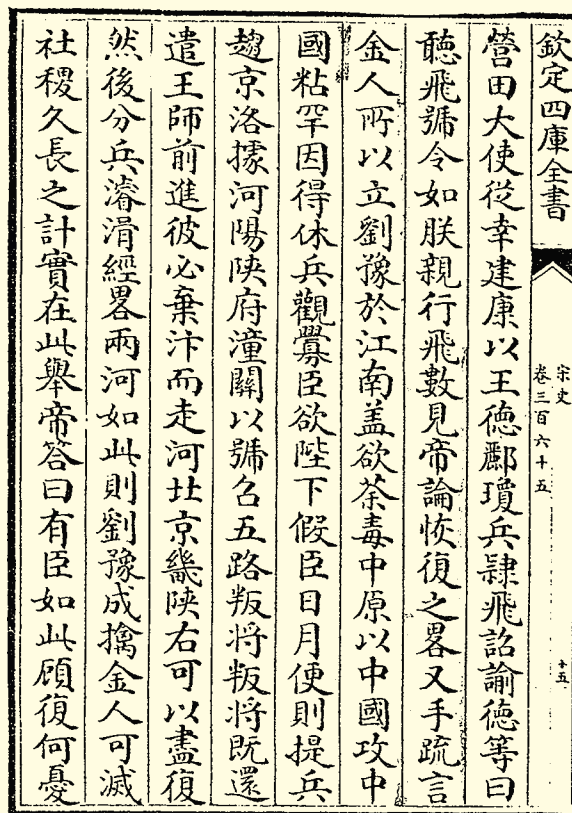 欽定四庫全書
宋史
卷三百六十五
十五
營田大使從幸建康以王德酈瓊兵隷飛詔諭德等曰
聽飛號令如朕親行飛數見帝論恢復之畧又手疏言
金人所以立劉豫於江南盖欲荼毒中原以中國攻中
國粘罕因得休兵觀釁臣欲陛下假臣日月便則提兵
趨京洛據河陽陜府潼關以號召五路叛将叛将既還
遣王師前進彼必棄汴而走河北京畿陜右可以盡復
然後分兵濬滑經畧兩河如此則劉豫成擒金人可滅
社稷久長之計實在此舉帝答曰有臣如此顧復何憂